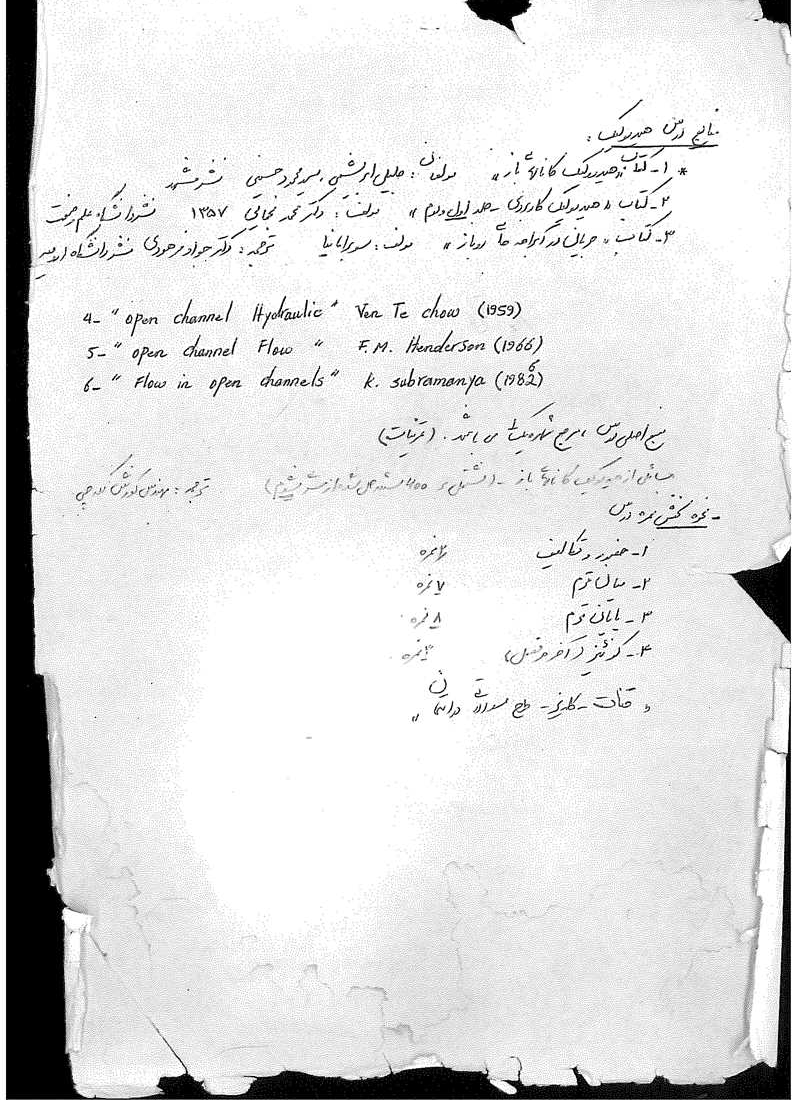 منابع درس هیدرولیک :
* ۱- کتاب «هیدرولیک کانالهای باز» مولفان : جلیل ابریشمی، سید محمود حسینی نشر مشهد
۲- کتاب «هیدرولیک کاربردی - جلد اول و دوم» مولف : دکتر محمد نجمایی ۱۳۵۷ نشر دانشگاه علم و صنعت
۳- کتاب «جریان در آبراهه های روباز» مولف : سوبرامانیا ترجمه : دکتر جواد فرهودی نشر دانشگاه
4- " open channel Hydraulic " Ven Te chow (1959)
5- " open channel Flow " F.M. Henderson (1966)
6- " Flow in open channels " K. subramanya (1982)
منبع اصلی درس مرجع شماره یک می باشد . (تمرینات)
مسائل از هیدرولیک کانالهای باز - (مشتمل بر ۴۰۰ مسئله حل شده از ترجمه : مهندس
- نحوه بخش نمره درس
۱- حضور و تکالیف ۲ نمره
۲- میان ترم ۷ نمره
۳- پایان ترم ۸ نمره
۴- کوئیز (آخر هر فصل) ۳ نمره
« قنات - کاریز - طرح